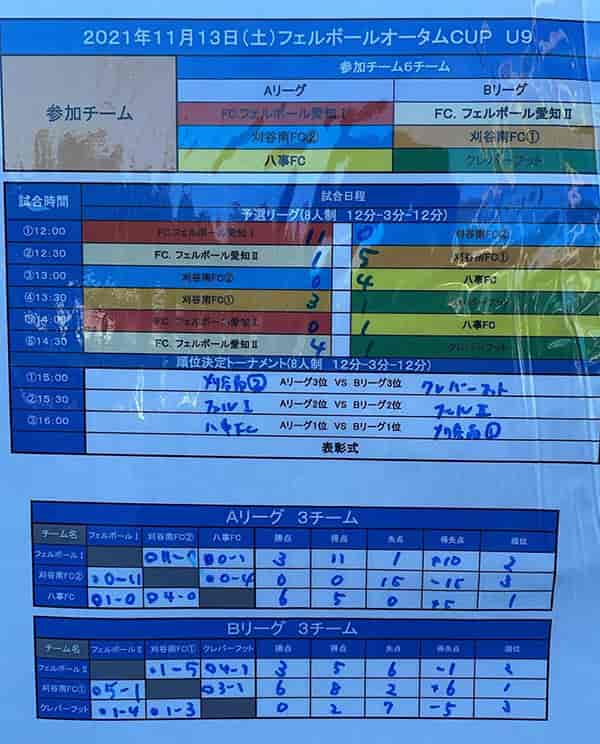 2021年11月13日(土)フェルボールオータムCUP U9
参加チーム
参加チーム6チーム
Aリーグ Bリーグ
FC.フェルボール愛知Ⅰ FC. フェルボール愛知Ⅱ
刈谷南FC② 刈谷南FC①
八事FC クレバーフット
試合時間 試合日程
予選リーグ(8人制 12分-3分-12分)
①12:00 FC.フェルボール愛知Ⅰ 11 0 刈谷南FC②
②12:30 FC. フェルボール愛知Ⅱ 1 5 刈谷南FC①
③13:00 刈谷南FC② 0 4 八事FC
④13:30 刈谷南FC① 3 1 クレバーフット
⑤14:00 FC.フェルボール愛知Ⅰ 0 1 八事FC
⑥14:30 FC. フェルボール愛知Ⅱ 4 1 クレバーフット
順位決定トーナメント(8人制 12分-3分-12分)
①15:00 刈谷南② Aリーグ3位 VS Bリーグ3位 クレバーフット
②15:30 フェルⅠ Aリーグ2位 VS Bリーグ2位 フェルⅡ
③16:00 八事FC Aリーグ1位 VS Bリーグ1位 刈谷南①
表彰式
Aリーグ 3チーム
チーム名 フェルボールⅠ 刈谷南FC② 八事FC 勝点 得点 失点 得失点 順位
フェルボールⅠ ○11-0 ●0-1 3 11 1 +10 2
刈谷南FC② ●0-11 ●0-4 0 0 15 -15 3
八事FC ○1-0 ○4-0 6 5 0 +5 1
Bリーグ 3チーム
チーム名 フェルボールⅡ 刈谷南FC① クレバーフット 勝点 得点 失点 得失点 順位
フェルボールⅡ ●1-5 ○4-1 3 5 6 -1 2
刈谷南FC① ○5-1 ○3-1 6 8 2 +6 1
クレバーフット ●1-4 ●1-3 0 2 7 -5 3